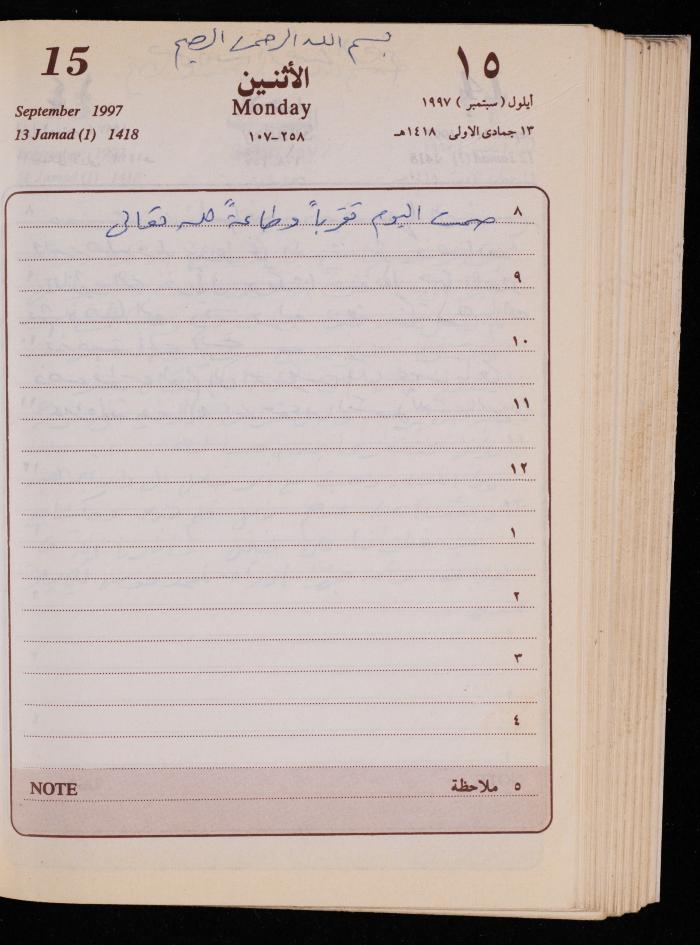 بسم الله الرحمن الرحيم
15
١٥
الأثنين
Monday
September 1997
أيلول (سبتمبر) ١٩٩٧
13 Jamad (1) 1418
٢٥٨-١٠٧
١٣ جمادى الاولى ١٤١٨هـ
٨ صمت اليوم تقرباً وطاعةً لله تعالى
٩
١٠
١١
١٢
١
٢
٣
٤
NOTE ٥ ملاحظة